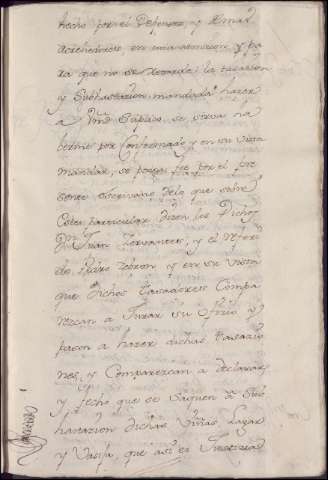 hecho por el Defensor, y demas
Acrehedores en una atencion y pa
ra que no se retarde la tasacion
y Subhastazion mandada hazer
a Vmd Suplico, se sirva ha
berme por Conformado y en su vista
mandar, se ponga fee por el pre
sente Escrivano delo que sobre
este particular dixeren los Dichos
Dn Juan Cervantes, y el referi
do Pedro y en su vista
que dichos tasadores Compa
rezcan a Jurar su ofizio y
pasen a hazer dichas tasazio
nes, y Comparezcan a declarar,
y fecho que se saquen a Sub
hastazion dichas Viñas, Lagar
y Vasija, que asi es Justicia